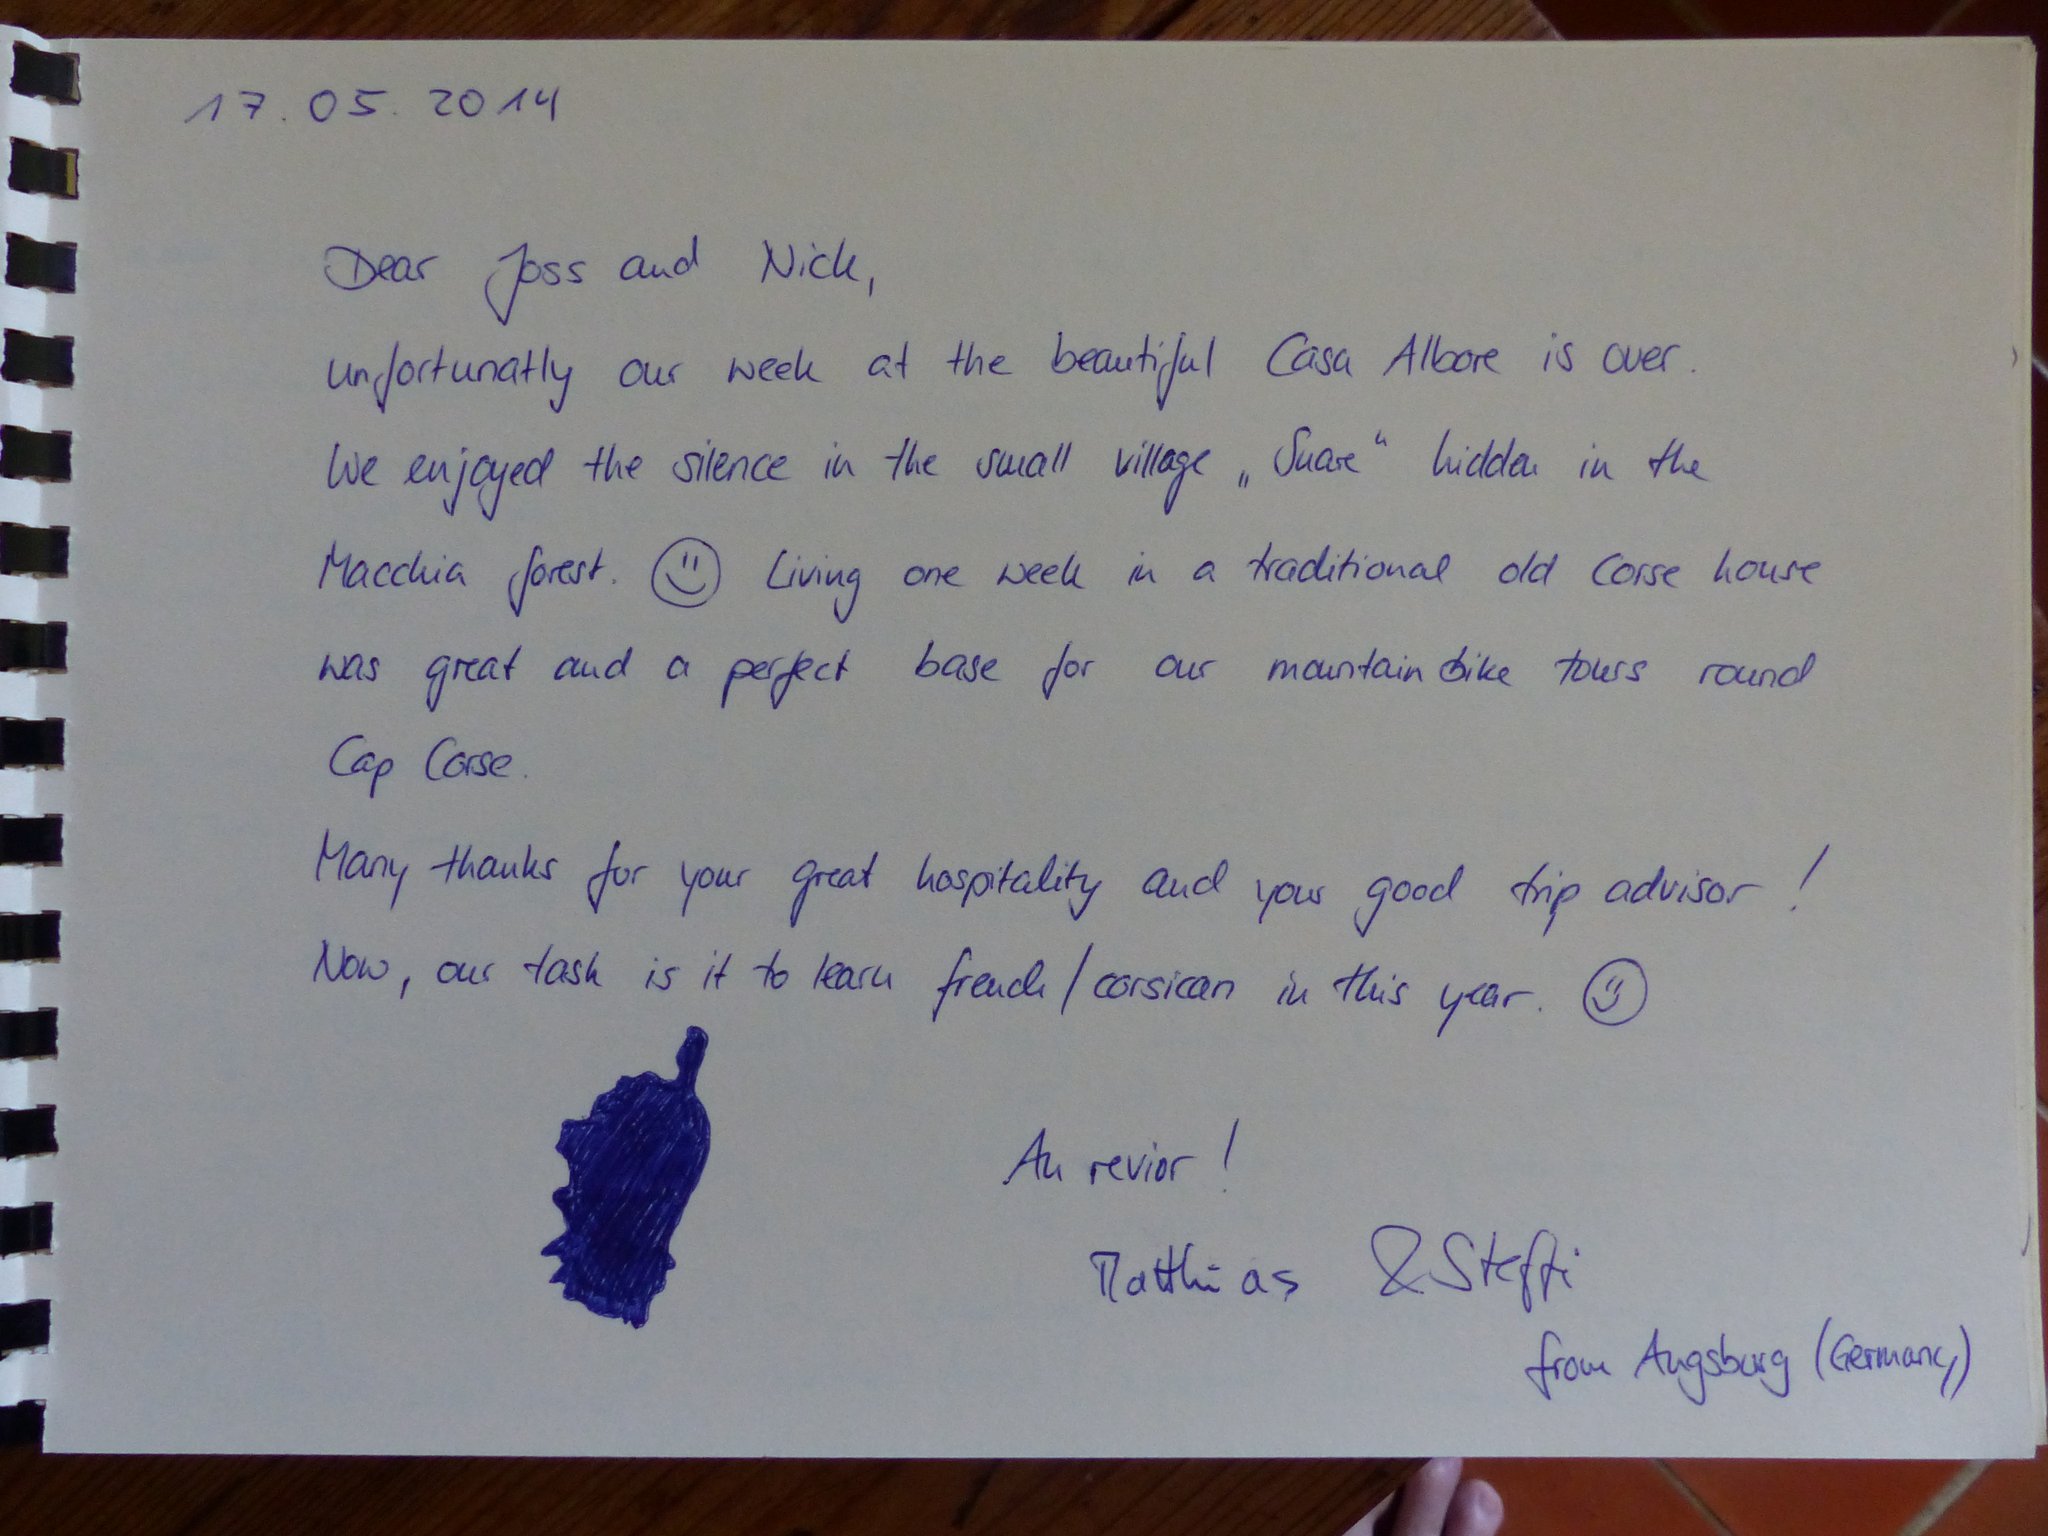 17.05.2014
Dear Joss and Nick,
unfortunatly our week at the beautiful Casa Albore is over.
We enjoyed the silence in the small village „Suare“ hidden in the
Macchia forest. ☺ Living one week in a traditional old Corse house
was great and a perfect base for our mountainbike tours round
Cap Corse.
Many thanks for your great hospitality and your good trip advisor!
Now, our task is it to learn french/corsican in this year. ☺
Au revior!
Matthias & Steffi
from Augsburg (Germany)